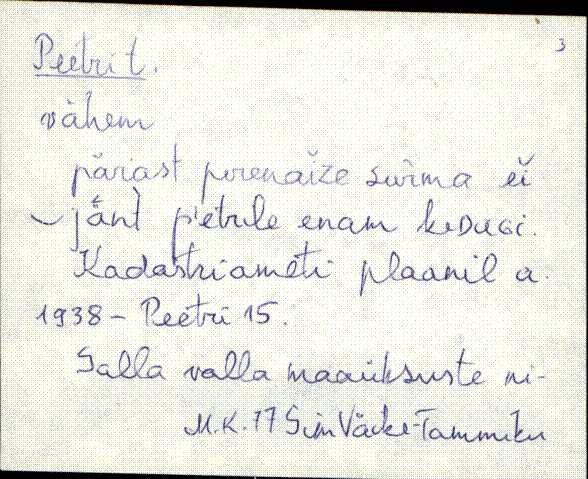 3
Peetri t.
vähem
päriast perenaize surma ei
jänt pietrile enam keDaGi.
Kadastriameti plaanil a.
1938 – Peetri 15.
Salla valla maaüksuste ni-
M.K. 77 Sim Väike-Tammiku